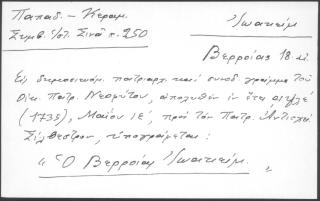 Παπαδ. - Κεραμ.
Συμβ. Ἱστ. Σινᾶ σ. 250
Ἰωακείμ
Βερροίας 18 αἰ.
Εἰς δημοσιευόμ. πατριαρχ. καὶ συνοδ. γράμμα τοῦ
Οἰκ. Πατρ. Νεοφύτου, ἀπολυθὲν ἐν ἔτει αψλε΄
(1735), Μαΐου ιε΄, πρὸς τὸν Πατρ. Ἀντιοχείας
Σίλβεστρον, ὑπογράφεται:
"Ὁ Βερροίας Ἰωακείμ."